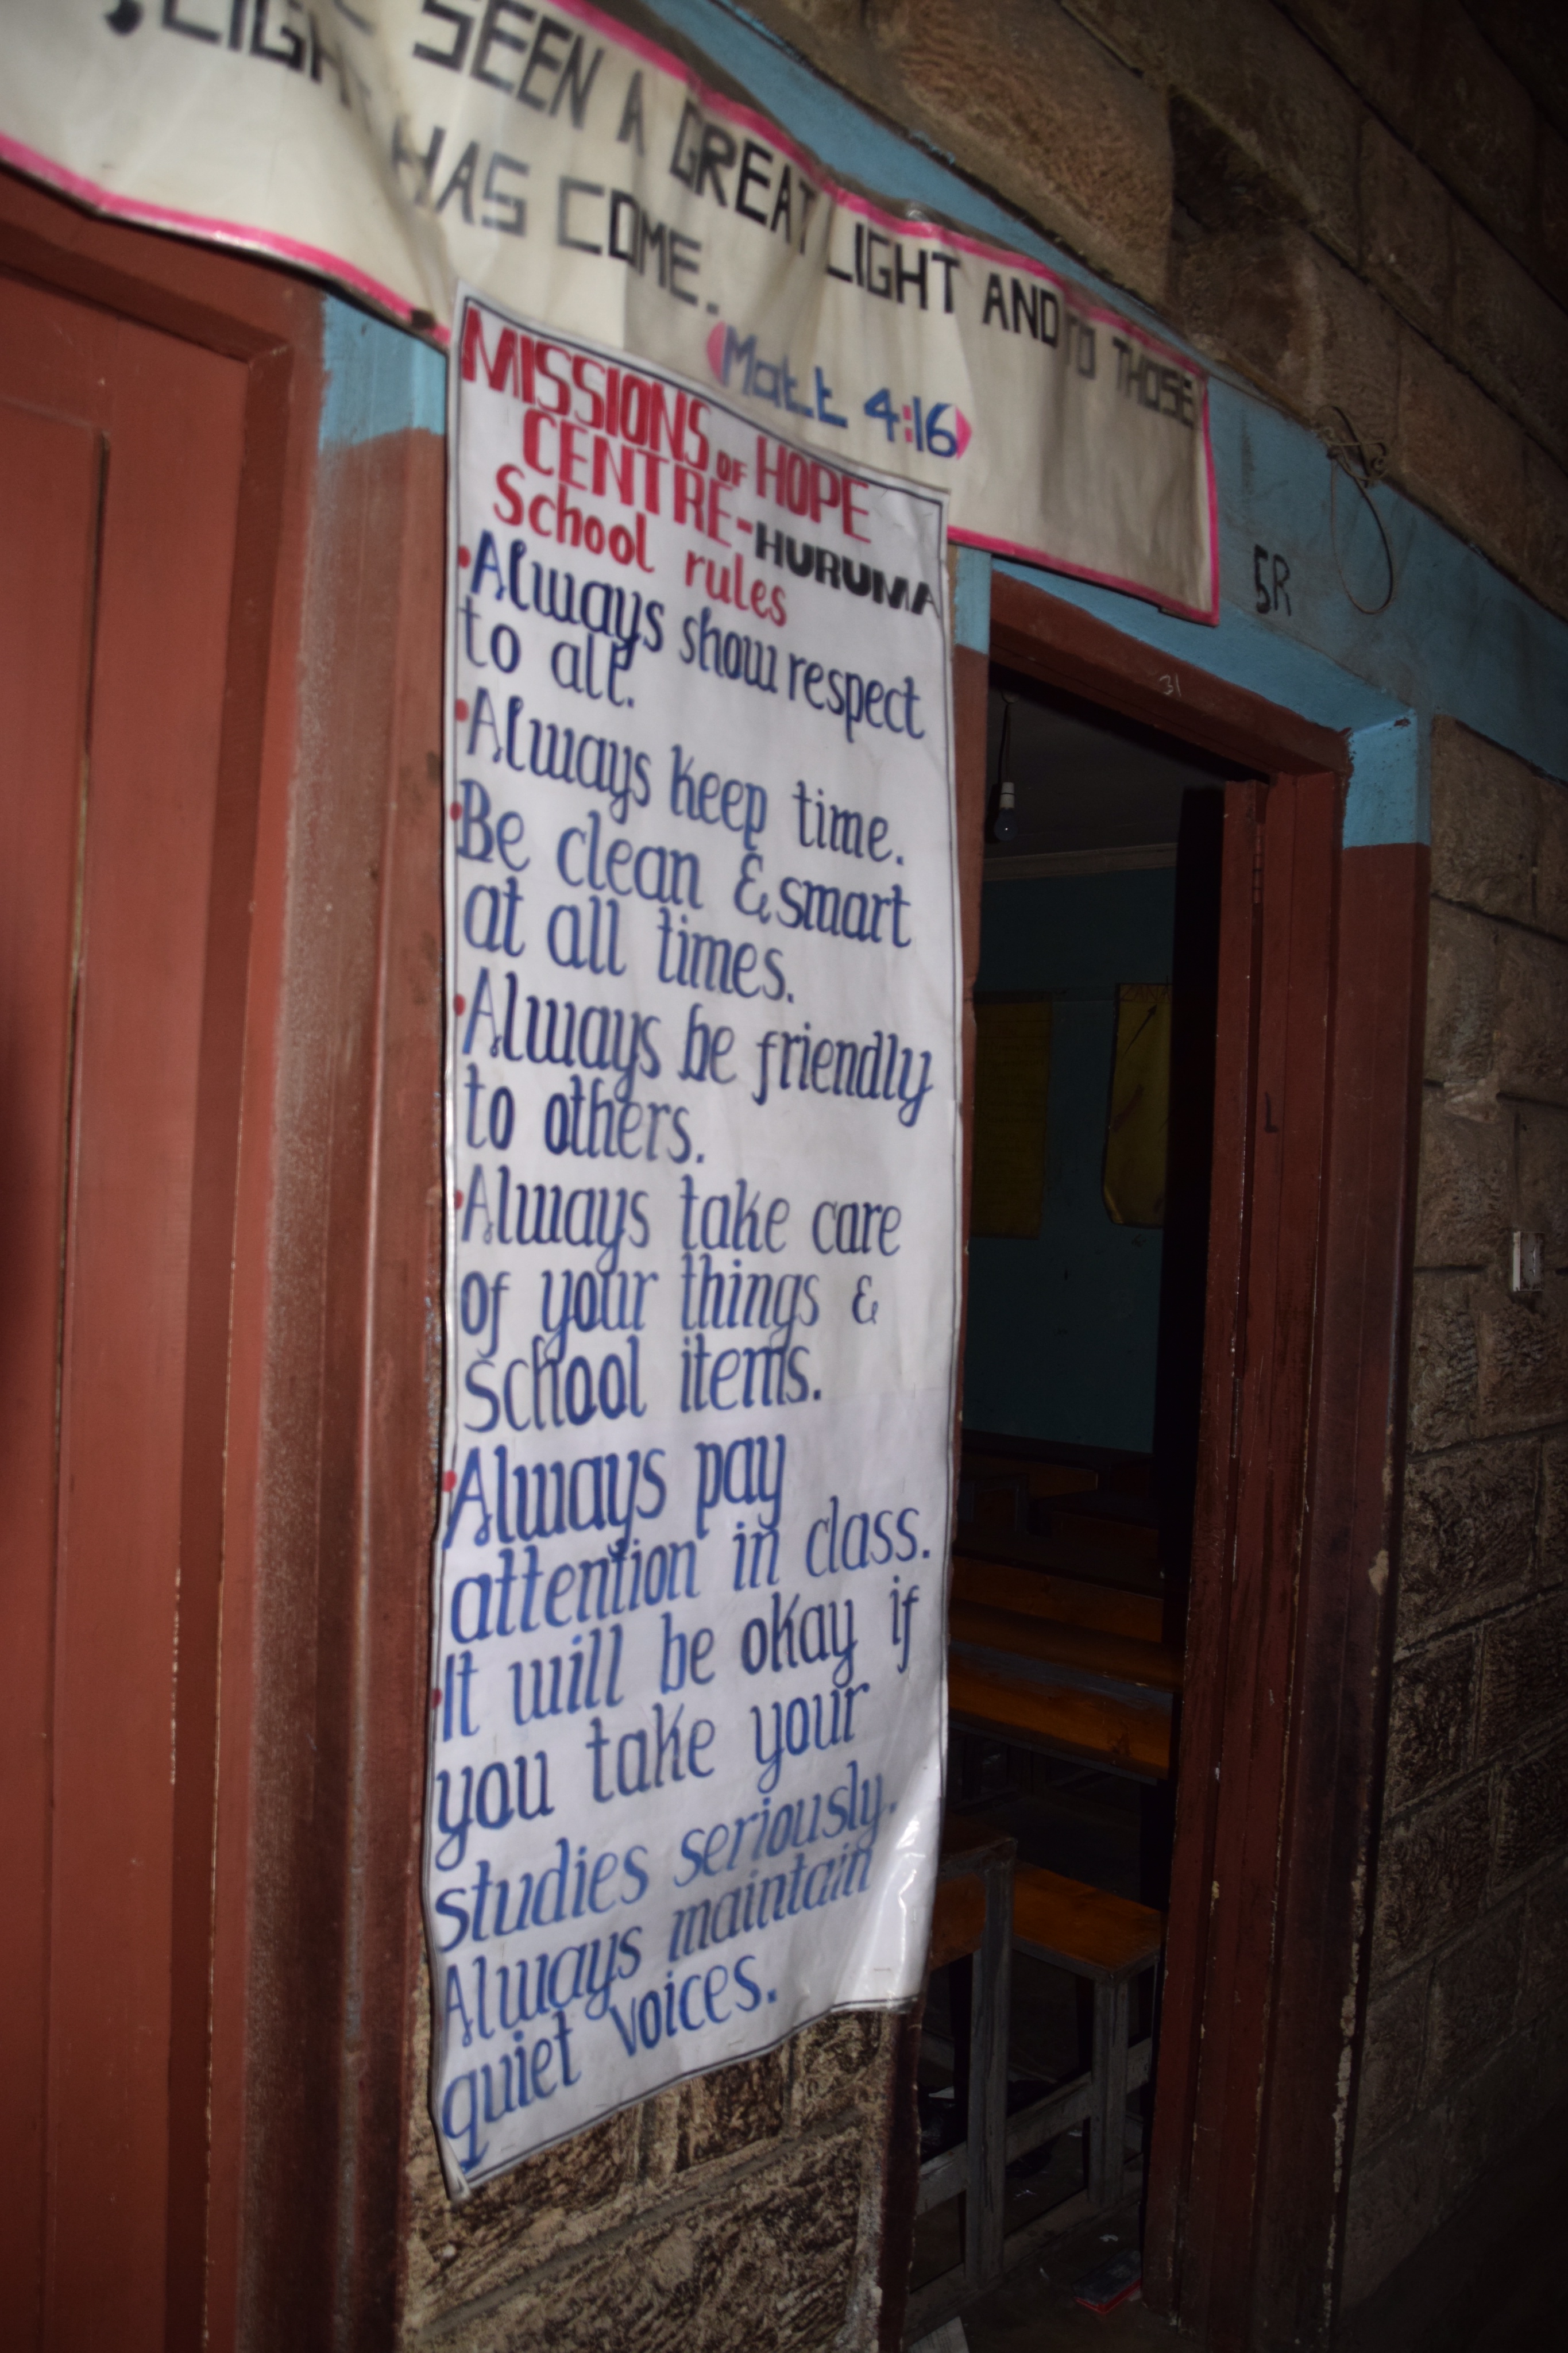 SEEN A GREAT LIGHT AND TO THOSE
LIGHT HAS COME.
(Matt 4:16)
MISSIONS OF HOPE
CENTRE-HURUMA
School rules
• Always show respect
to all.
• Always keep time.
• Be clean & smart
at all times.
• Always be friendly
to others.
• Always take care
of your things &
school items.
• Always pay
attention in class.
• It will be okay if
you take your
studies seriously.
Always maintain
quiet voices.
5R
31
L